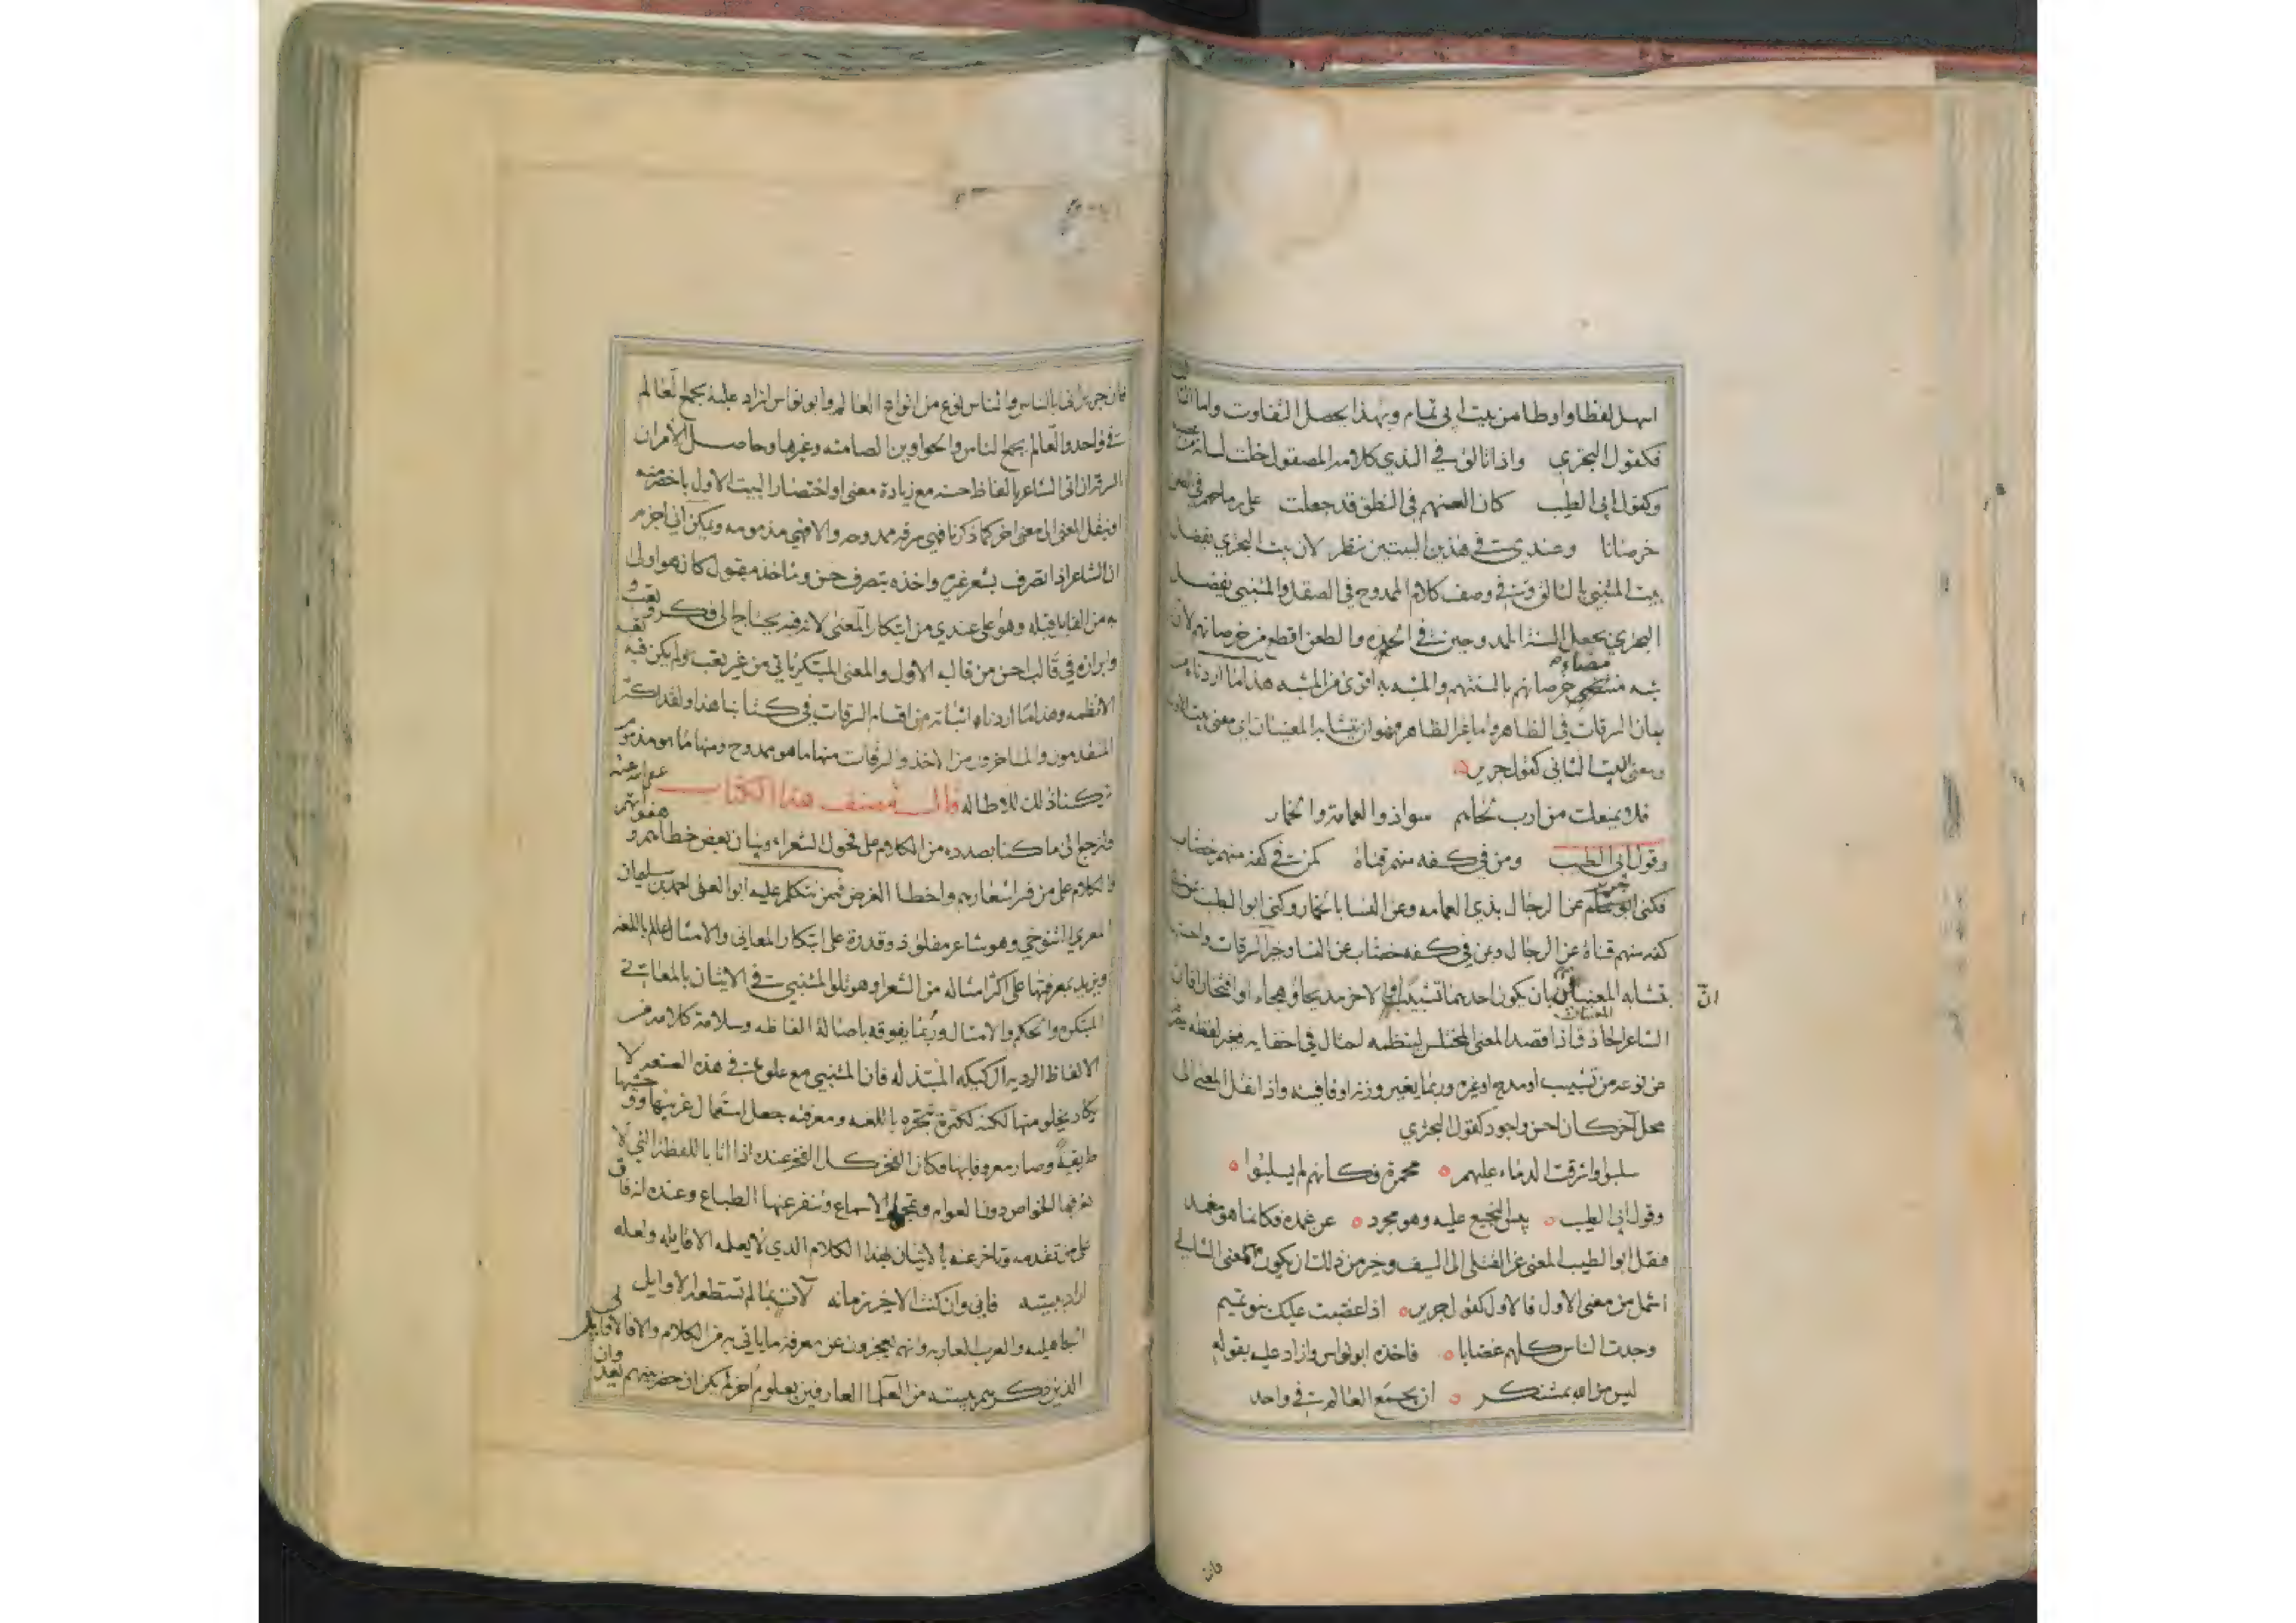 اسهل لفظا واوطا من بيت ابي تمام وبهذا يحصل التفاوت واما الثالث
فكقول البحتري واذا تالق في الندي كلامه المصقول خلت لسانه من عضبه
وكقول ابي الطيب كان السنهم في النطق قد جعلت على رماحهم في الطعن
خرصانا وعندي في هذين البيتين نظر لان بيت البحتري يفضل
بيت المتنبي بالتالق في وصف كلام الممدوح في الصقل والمتنبي يفضل
البحتري بجعل السنة الممدوحين في الحده والطعن اقطع من خرصانهم لان
شبه مضاء خرصانهم بالسنتهم والمشبه به اقوى من المشبه هذا ما اردناه من
بيان السرقات في الظاهر واما غير الظاهر فهو ان يتشابه المعنيان اي معنى بيت الاول
ومعنى البيت الثاني كقول جرير
فلا يمنعك من ارب لحاهم سواء ذو العمامة والخمار
وقول ابي الطيب ومن في كفه منهم قناة كمن في كفه منهم خضاب
فكنى جرير عن الرجال بذي العمامه وعن النسا بالخمار وكنى ابو الطيب عن في
كفه منهم قناة عن الرجال وبمن في كفه خضاب عن النسا وخير السرقات واحسنها
ان
بتشابه المعنيين بان يكون احدهما تشبيبا والاخر مديحا او هجاء او افتخارا فان
المعنيان
الشاعر الحاذق اذا قصد المعنى المختلس لينظمه احتال في اخفايه فغير لفظه
عن نوعه من تشبيب او مديح او غيره وربما يغير وزنه او قافيته واذا نقل المعنى الى
محل آخر كان احسن واجود كقول البحتري
سلبوا واشرقت الدماء عليهم محمرة فكانهم لم يسلبوا
وقول ابي الطيب يبس النجيع عليه وهو مجرد عن غمده فكانما هو مغمد
فنقل ابو الطيب المعنى عن القتلى الى السيف وخير من ذلك ان يكون المعنى الثاني
اشمل من معنى الاول فالاول كقول جرير اذا غضبت عليك بنو تميم
وجدت الناس كلهم غضابا فاخذه ابو نواس وازاد عليه بقوله
ليس من الله بمستنكر ان يجمع العالم في واحد
فان
فان جرير اتى بالناس والناس نوع من انواع العالم وابو نواس ازاد عليه بجمع العالم
في واحد والعالم يجمع الناس والحواوين الصامته وغيرها وحاصل الامر ان
السرقه ان اتى الشاعر بالفاظ حسنه مع زيادة معنى او اختصار البيت الاول باخصر منه
او ينقل المعنى الى معنى اخر كما ذكرنا فهي سرقه ممدوحه والا فهي مذمومه ويمكن اني اجزم
ان الشاعر اذا تصرف بشعر غيره واخذه بتصرف حسن وماخذه مقبول كان هو اولى
به من القايل قبله وهو اعلى عندي من ابتكار المعنى لانه فيه يحتاج الى فكر وتعب
وابرازه في قالب احسن من قالب الاول والمعنى المبتكر ياتي من غير تعب ولم يكن فيه
الا نظمه وهذا ما اردناه اثباته من اقسام السرقات في كتابنا هذا ولقد اكثر
المتقدمون والمتاخرون من الاخذ والسرقات منها ما هو ممدوح ومنها ما هو مذموم
تركنا ذلك للاطاله قال مصنف هذا الكتاب عفى الله عنه
ولنرجع الى ما كنا بصدده من الكلام على فحول الشعراء وبيان بعض خطائهم وهفواتهم
والكلام على من فسر اشعارهم واخطا الغرض فممن نتكلم عليه ابو العلى احمد بن سليمان
المعري التنوخي وهو شاعر مفلق ذو قدرة على ابتكار المعاني والامثال عالم باللغه
ويزيد بمعرفتها على اكثر امثاله من الشعرا وهو تلو المتنبي في الاتيان بالمعاني
المبتكره والحكم والامثال وربما يفوقه باصالة الفاظه وسلامة كلامه من
الالفاظ الرديه الركيكه المبتذله فان المتنبي مع علوه في هذه الصنعه لا
يكاد يخلو منها لكنه لكثرة تبحره باللغه ومعرفته جعل استعمال غريبها ووحشيها
طريقة وصار معروفا بها فكان الفخر كل الفخر عنده اذا اتا باللفظة التي لا
يعرفها الخواص دون العوام وتمجها الاسماع وتنفر عنها الطباع وعنده انه فاق
على من تقدمه وتاخر عنه بالاتيان بهذا الكلام الذي لا يعلمه الا قايله ولعله
اراد ببيته فاني وان كنت الاخير زمانه لآت بما لم تستطعه الاوايل
الجاهليه والعرب العاربه وانهم يعجزون عن معرفة ما ياتي به من الكلام والا فالاوايل
الذين ذكرهم ببيته من العلما العارفين بعلوم اخر لم يمكن ان حضر بينهم وان يعد